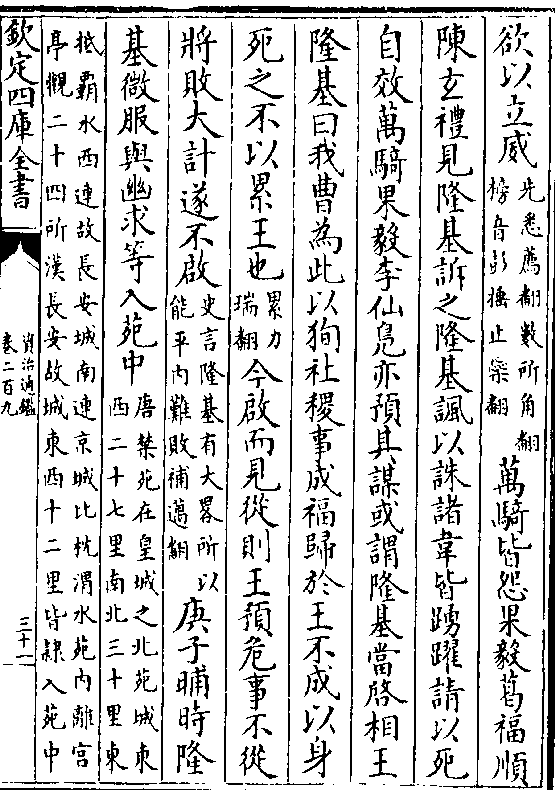 欲以立威先悉薦翻數所角翻榜音彭捶止橤翻萬騎皆怨果毅葛福順
陳玄禮見隆基訴之隆基諷以誅諸韋皆踴躍請以死
自效萬騎果毅李仙鳧亦預其謀或謂隆基當啓相王
隆基曰我曹為此以狥社稷事成福歸於王不成以身
死之不以累王也累力瑞翻今啟而見從則王預危事不從
將敗大計遂不啟史言隆基有大畧所以能平内難敗補邁翻庚子晡時隆
基微服與幽求等入苑中唐禁苑在皇城之北苑城東西二十七里南北三十里東
抵霸水西連故長安城南連京城北枕渭水苑内離宮
亭觀二十四所漢長安故城東西十二里皆隸入苑中
欽定四庫全書
資治通鑑
卷二百九
三十一